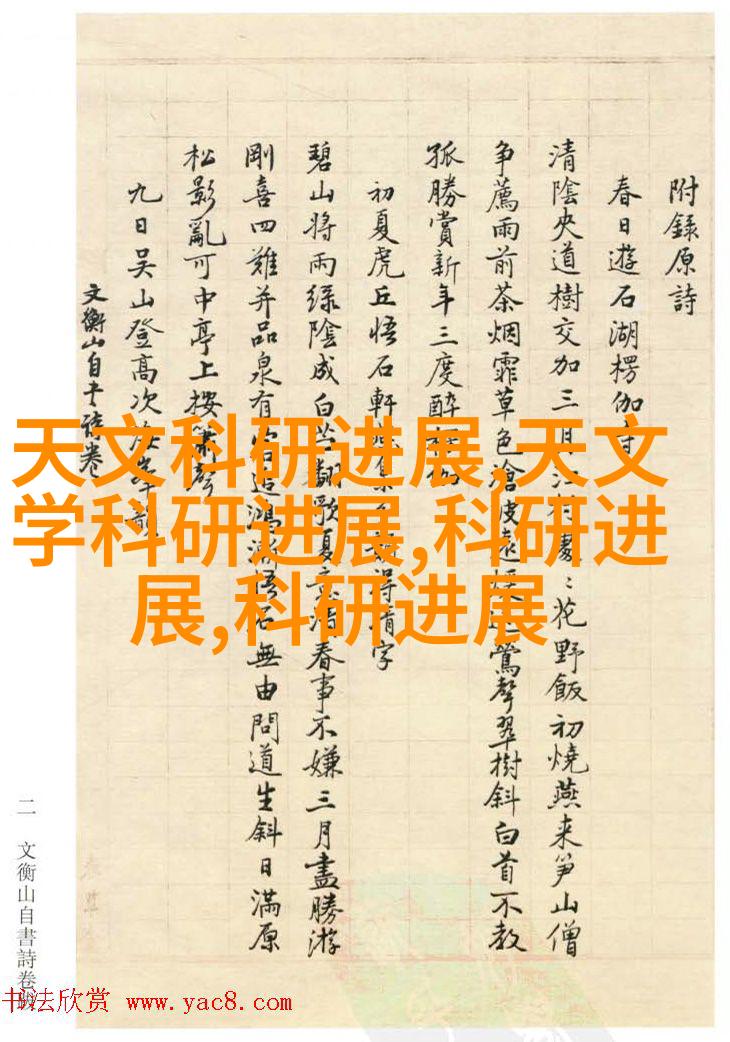 附錄原詩
春日遊石湖楞伽寺
清陰夾道樹交加三月江村處〻花野飯初燒燕来笋山僧
争薦雨前茶烟霏草色滄波遠鶯聲翠樹斜白首不教
孤勝賞新年三度醉楞伽
初夏虎丘悟石軒集得字
碧山将雨綠陰成白苎翻歌夏清春事不嫌三月盡勝游
剛喜四難并品泉有鴻漸悟石無由問道生斜日滿原
松影亂可中亭上按聲
九日吳山登高次韻
文衡山自書詩卷
二 文衡山自書詩卷跋
天文科研进展,天文
学科研进展,科研进
展,科研进展
书法欣赏 www.yac8.com